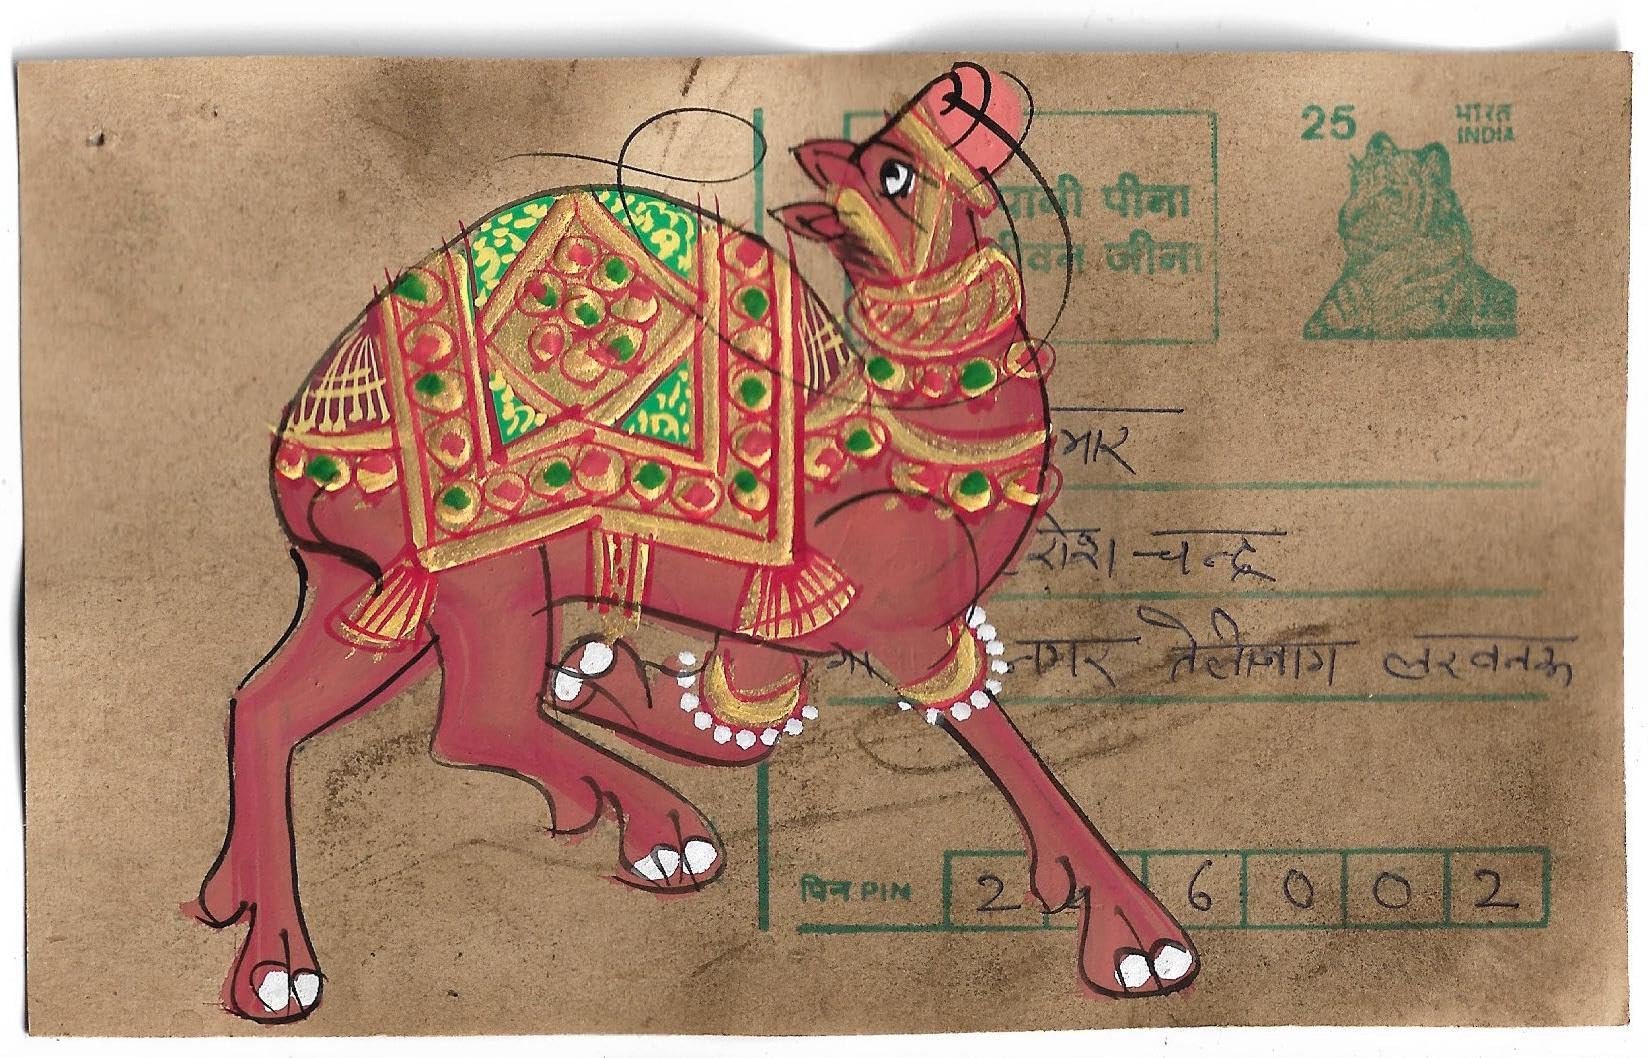 25 भारत
INDIA
पानी पीना
जीवन जीना
मार
चन्द्र
नगर तेलीबाग लखनऊ
पिन PIN 2 2 6 0 0 2